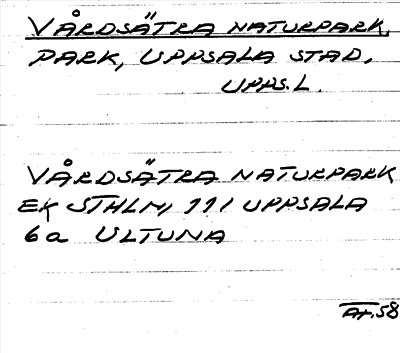 VÅRDSÄTRA NATURPARK,
PARK, UPPSALA STAD,
UPPS.L.
VÅRDSÄTRA NATURPARK
EK STHLM, 111 UPPSALA
6a ULTUNA